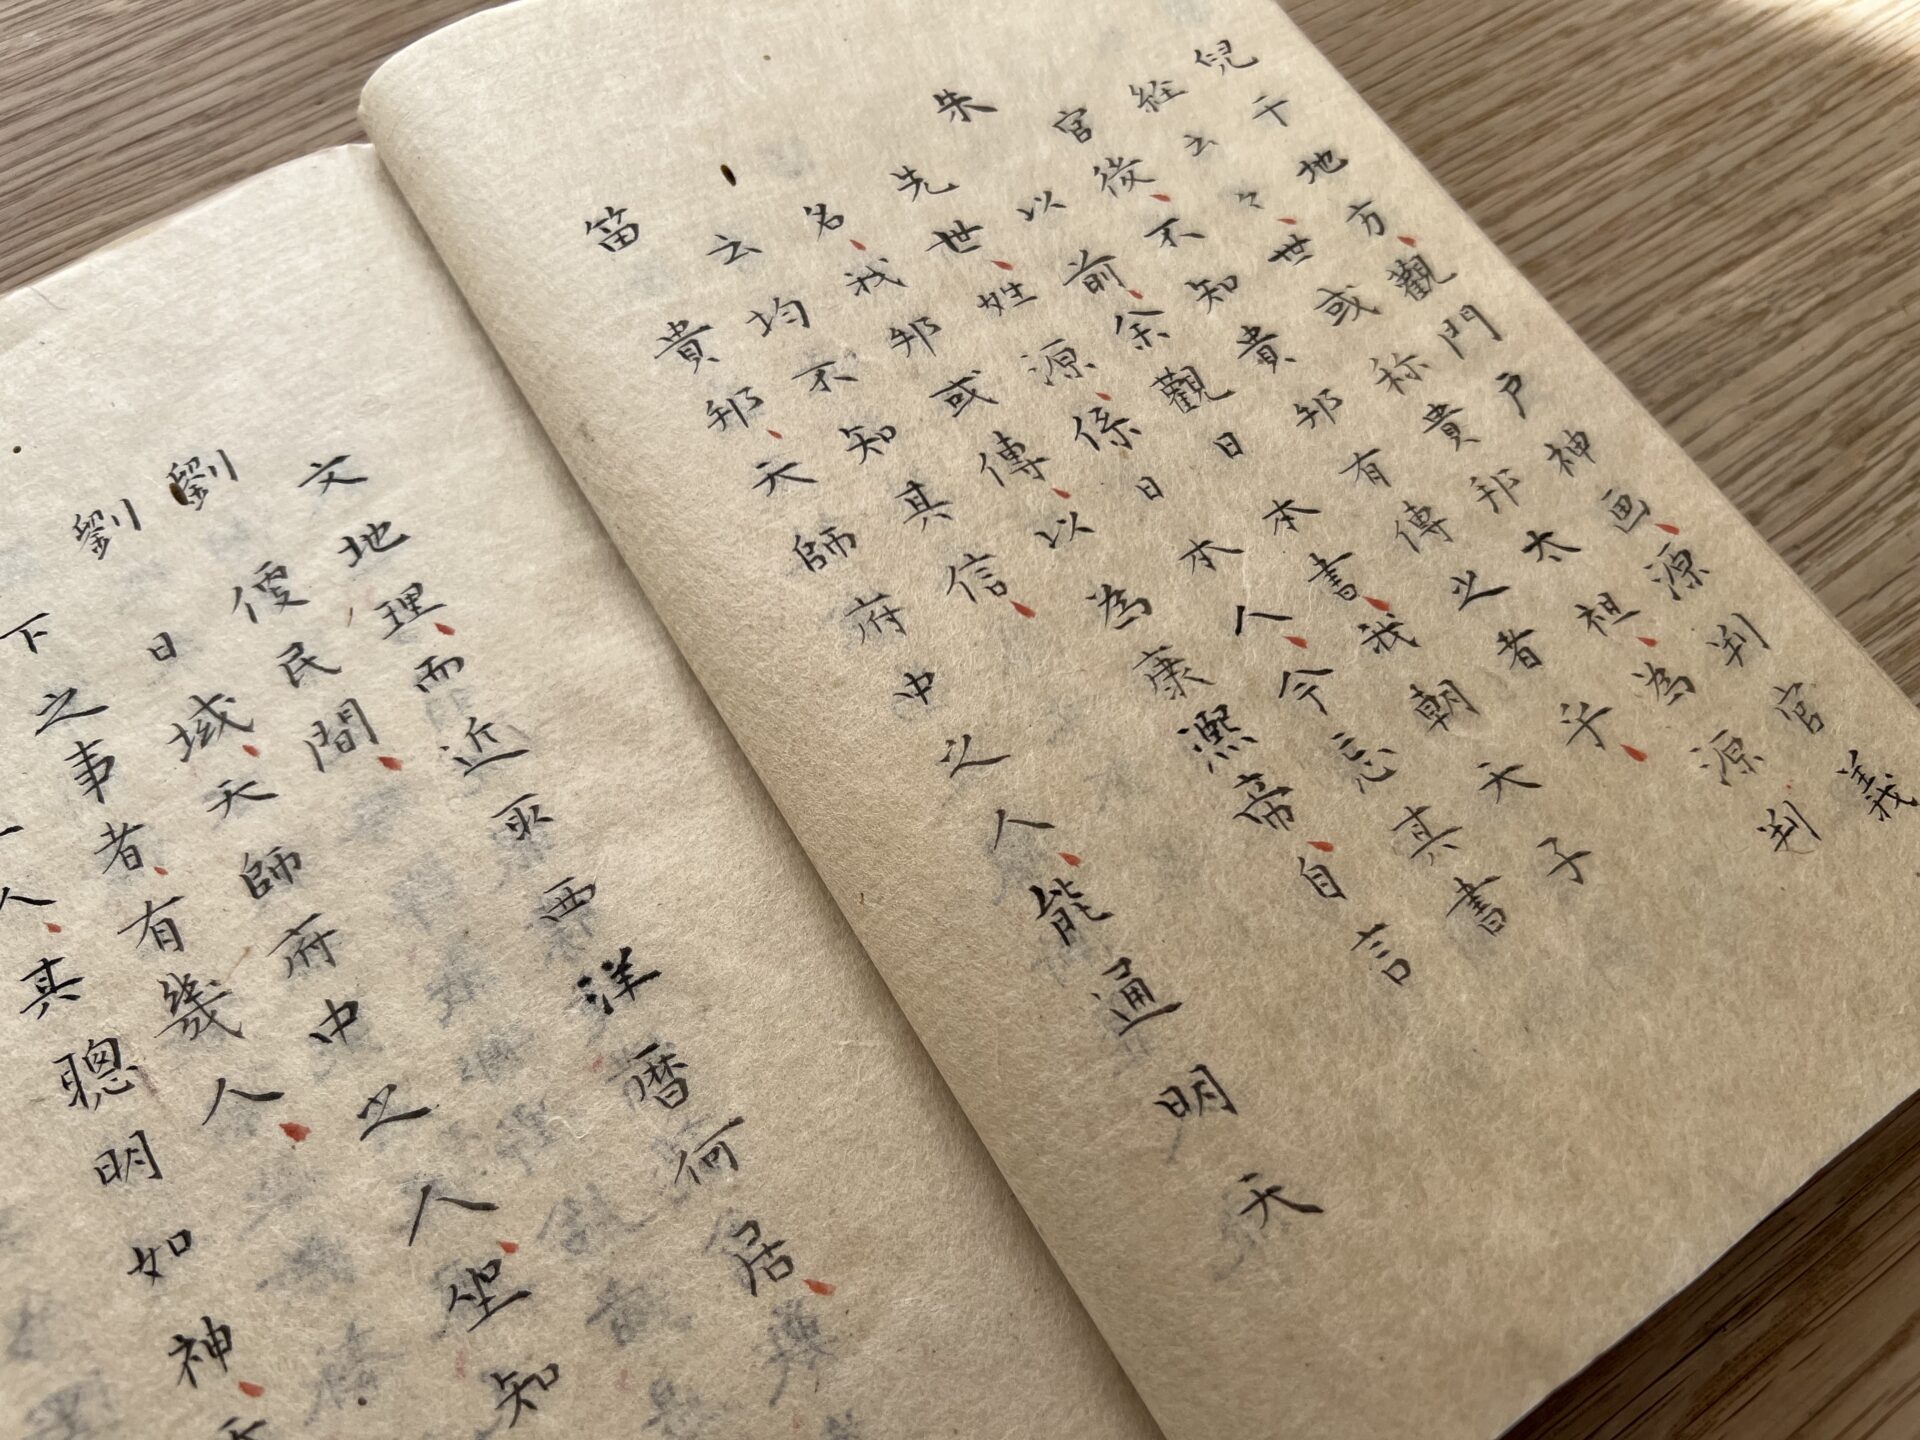 兒干地方觀門戸神画源判官義
経云々世或称貴邦太祖為源判
官後不知貴邦有傳之者乎
朱 以前余觀日本書我朝天子
先世姓源係日本人今忘其書
名我邦或傳以為康熙帝自言
云均不知其信
笛 貴邦天師府中之人能通明天
文地理而近取西洋暦何居
劉 便民間
劉 日域天師府中之人坐知
下之事者有幾人
人其聰明如神